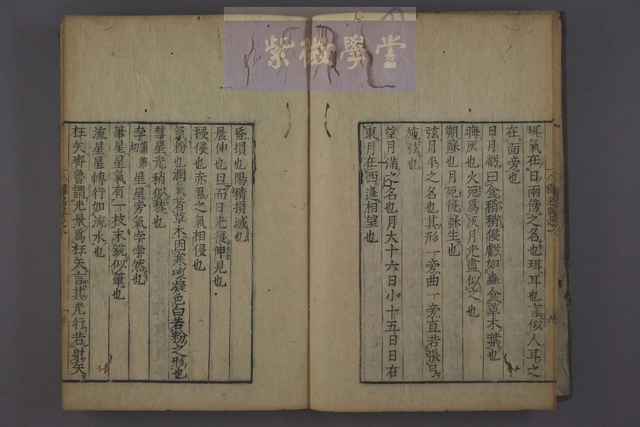 紫微學堂
珥氣在日兩傍之名也珥耳也言似人耳之
在面旁也
日月虧曰食稍稍侵虧如蟲食草木葉也
晦灰也火死為灰月光盡似之也
朔蘇也月死復蘇生也
弦月半之名也其形一旁曲一旁直若張弓
施弦也
望月滿之名也月大十六日小十五日日在
東月在西遙相望也
昏損也陽精損滅也
晨伸也旦而日光復伸見也
祲侵也赤黑之氣相侵也
氛粉也潤氣著草木因寒凍凝色白若粉之形也
彗星光梢似彗也
孛星星旁氣孛孛然也
筆星星氣有一枝末銳似筆也
流星星轉行如流水也
枉矢齊魯謂光景為枉矢言其光行若射矢